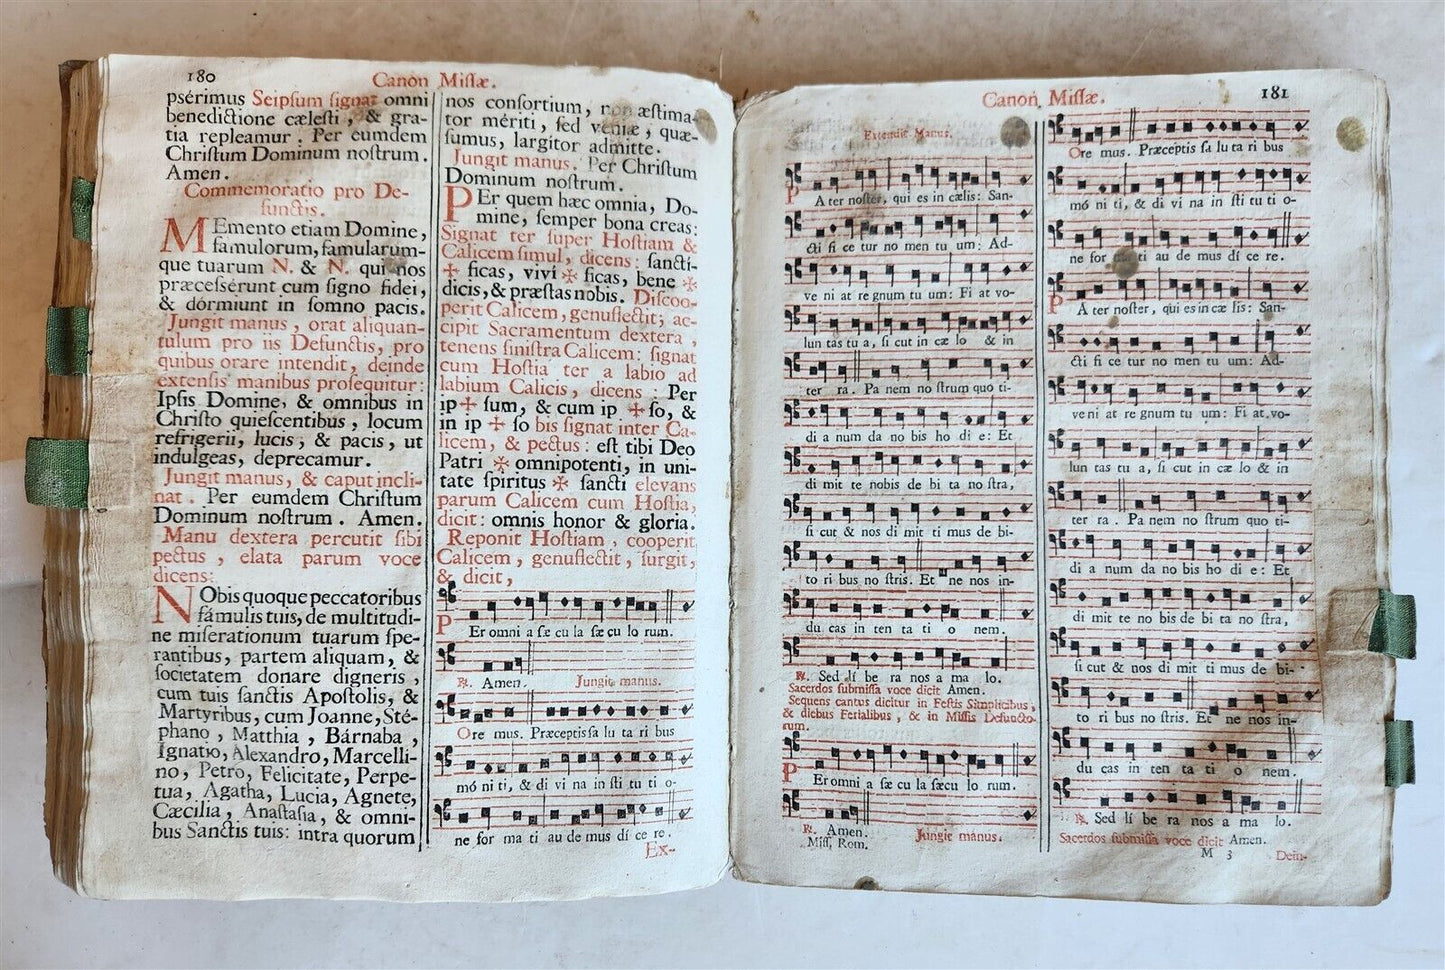 180
Canon Missæ.
psérimus Seipsum signat omni
benedictione cælesti, & gra-
tia repleamur. Per eumdem
Christum Dominum nostrum.
Amen.
Commemoratio pro De-
functis.
MEmento etiam Domine,
famulorum, famularum-
que tuarum N. & N. qui nos
præcessérunt cum signo fidei,
& dórmiunt in somno pacis.
Jungit manus, orat aliquan-
tulum pro iis Defunctis, pro
quibus orare intendit, deinde
extensis manibus prosequitur:
Ipsis Domine, & omnibus in
Christo quiescentibus, locum
refrigerii, lucis, & pacis, ut
indulgeas, deprecamur.
Jungit manus, & caput incli-
nat. Per eumdem Christum
Dominum nostrum. Amen.
Manu dextera percutit sibi
pectus, elata parum voce
dicens:
NObis quoque peccatoribus
fámulis tuis, de multitudi-
ne miserationum tuarum spe-
rantibus, partem aliquam, &
societatem donare digneris,
cum tuis sanctis Apostolis, &
Martyribus, cum Joanne, Sté-
phano, Matthia, Bárnaba,
Ignatio, Alexandro, Marcelli-
no, Petro, Felicitate, Perpe-
tua, Agatha, Lucia, Agnete,
Cæcilia, Anastasia, & omni-
bus Sanctis tuis: intra quorum
nos consortium, non æstima-
tor mériti, sed veniæ, quæ-
sumus, largitor admitte.
Jungit manus. Per Christum
Dominum nostrum.
PEr quem hæc omnia, Do-
mine, semper bona creas:
Signat ter super Hostiam &
Calicem simul, dicens: sancti-
✠ ficas, viví ✠ ficas, bene ✠
dicis, & præstas nobis. Discoo-
perit Calicem, genuflectit; ac-
cipit Sacramentum dextera,
tenens sinistra Calicem: signat
cum Hostia ter a labio ad
labium Calicis, dicens: Per
ip ✠ sum, & cum ip ✠ so, &
in ip ✠ so bis signat inter Ca-
licem, & pectus: est tibi Deo
Patri ✠ omnipotenti, in uni-
tate spiritus ✠ sancti elevans
parum Calicem cum Hostia,
dicit: omnis honor & gloria.
Reponit Hostiam, cooperit
Calicem, genuflectit, surgit,
& dicit,
PEr omni a sæ cu la sæ cu lo rum.
℟. Amen. Jungit manus.
Ore mus. Præceptis sa lu ta ri bus
mó ni ti, & di vi na in sti tu ti o-
ne for ma ti au de mus dí ce re.
Ex-
Canon Missæ.
181
Extendit Manus.
PAter noster, qui es in cælis: San-
cti fi ce tur no men tu um: Ad-
ve ni at re gnum tu um: Fi at vo-
lun tas tu a, si cut in cæ lo & in
ter ra. Pa nem no strum quo ti-
di a num da no bis ho di e: Et
di mit te nobis de bi ta no stra,
si cut & nos di mit ti mus de bi-
to ri bus no stris. Et ne nos in-
du cas in ten ta ti o nem.
℟. Sed lí be ra nos a ma lo.
Sacerdos submissa voce dicit Amen.
Sequens cantus dicitur in Festis Simplicibus,
& diebus Ferialibus, & in Missis Defuncto-
rum.
PEr omni a sæ cu la sæcu lo rum.
℟. Amen. Jungit mánus.
Miss. Rom.
Ore mus. Præceptis sa lu ta ri bus
mó ni ti, & di vi na in sti tu ti o-
ne for ma ti au de mus dí ce re.
PAter noster, qui es in cæ lis: San-
cti fi ce tur no men tu um: Ad-
ve ni at re gnum tu um: Fi at vo-
lun tas tu a, si cut in cæ lo & in
ter ra. Pa nem no strum quo ti-
di a num da no bis ho di e: Et
di mit te no bis de bi ta no stra,
si cut & nos di mit ti mus de bi-
to ri bus no stris. Et ne nos in-
du cas in ten ta ti o nem.
℟. Sed lí be ra nos a ma lo.
Sacerdos submissa voce dicit Amen.
M 3
Dein-